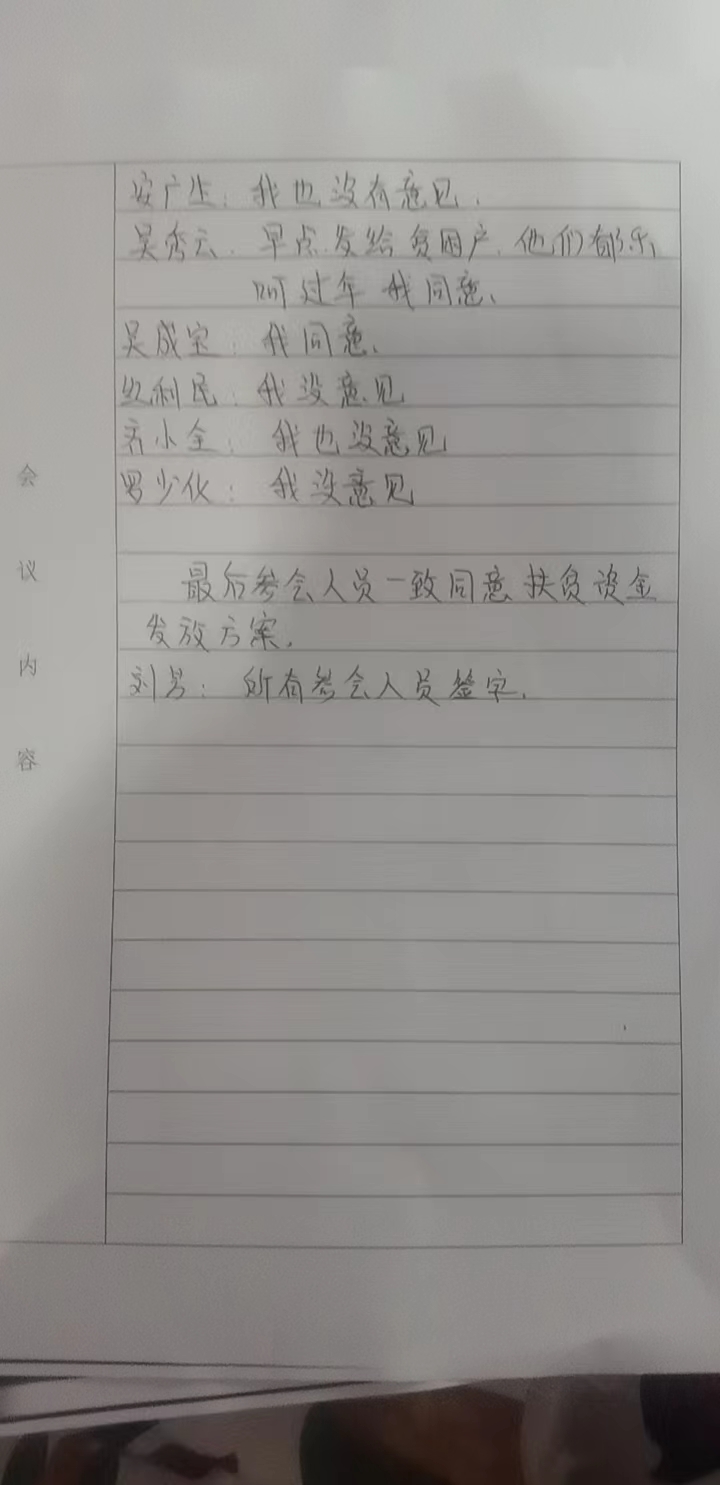 安广生：我也没有意见.
吴秀云.早点发给贫困户.他们都乐
呵过年 我同意、
吴成宝：我同意、
红利民：我没意见
齐小全：我也没意见
罗少化：我没意见
最后参会人员一致同意扶贫资金
发放方案.
刘男：所有参会人员签字.
会议内容